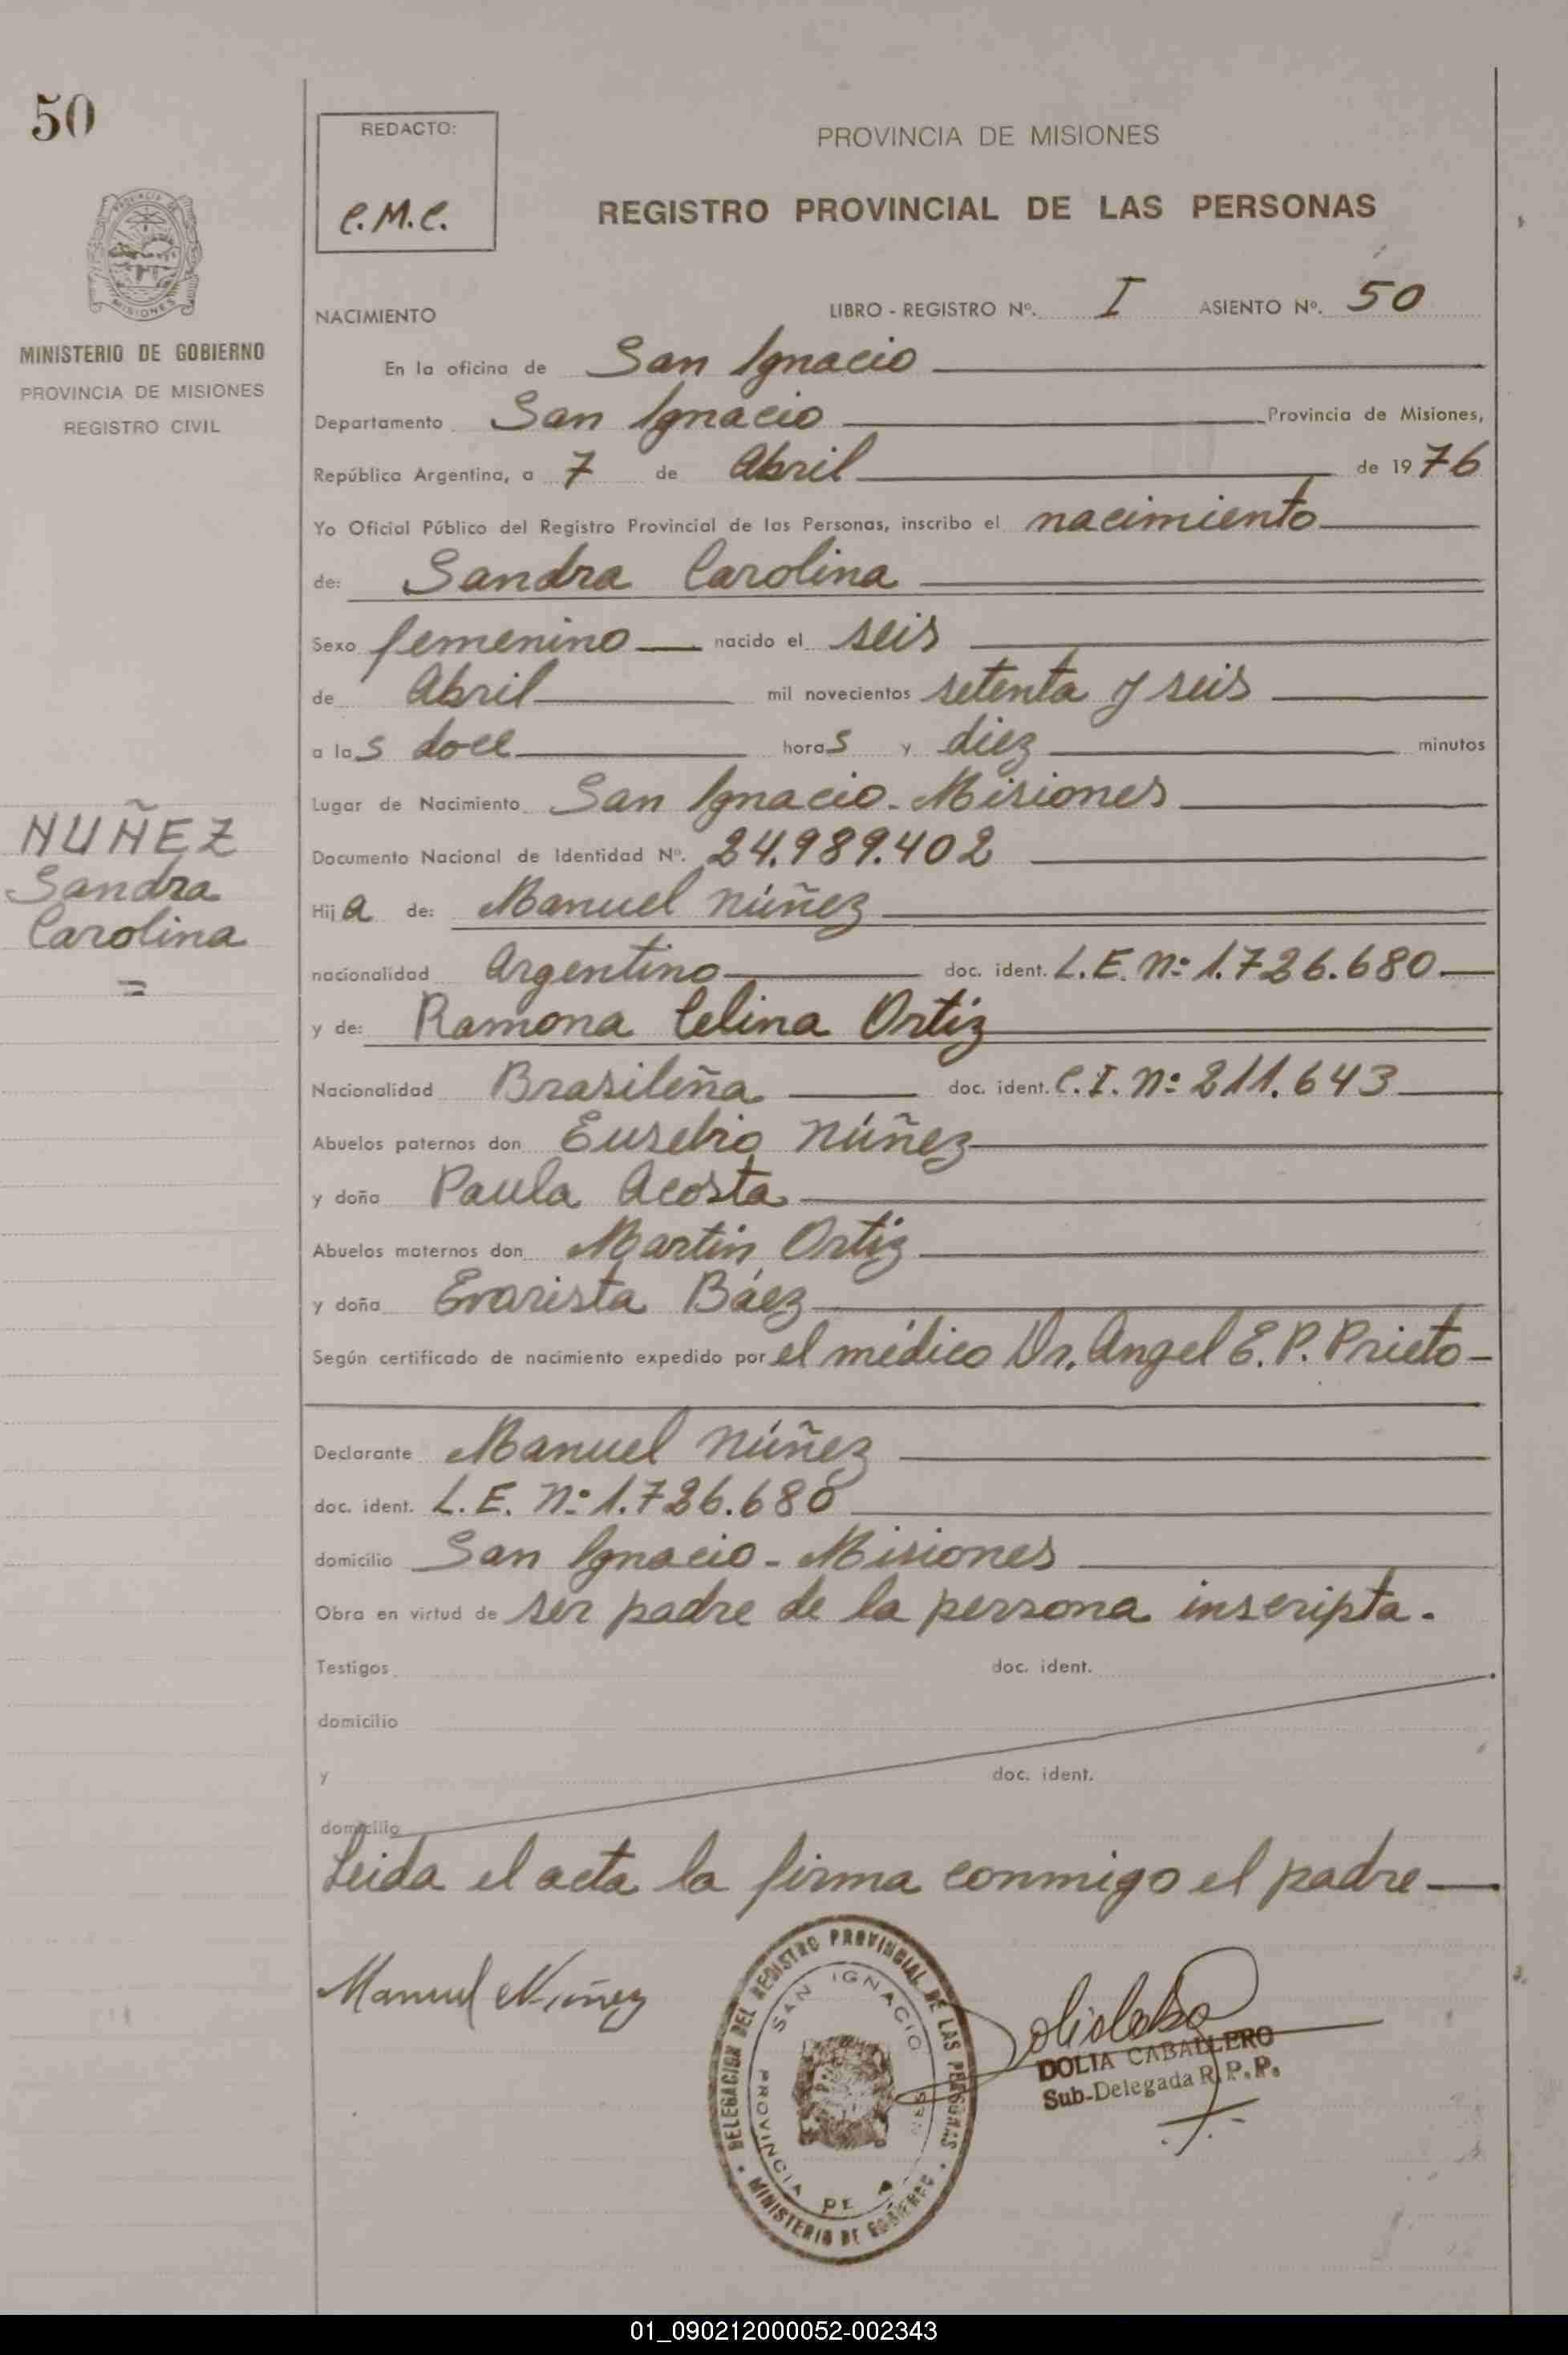 50
MINISTERIO DE GOBIERNO
PROVINCIA DE MISIONES
REGISTRO CIVIL
NUÑEZ
Sandra
Carolina
=
REDACTO:
C.M.C.
PROVINCIA DE MISIONES
REGISTRO PROVINCIAL DE LAS PERSONAS
NACIMIENTO LIBRO - REGISTRO Nº. I ASIENTO Nº. 50
En la oficina de San Ignacio
Departamento San Ignacio Provincia de Misiones,
República Argentina, a 7 de Abril de 1976
Yo Oficial Público del Registro Provincial de las Personas, inscribo el nacimiento
de: Sandra Carolina
Sexo femenino nacido el seis
de Abril mil novecientos setenta y seis
a las doce horas y diez minutos
Lugar de Nacimiento San Ignacio - Misiones
Documento Nacional de Identidad Nº. 24.989.402
Hija de: Manuel Núñez
nacionalidad Argentino doc. ident. L.E. Nº 1.726.680
y de: Ramona Celina Ortiz
Nacionalidad Brasileña doc. ident. C.I. Nº 211.643
Abuelos paternos don Eusebio Núñez
y doña Paula Acosta
Abuelos maternos don Martin Ortiz
y doña Evarista Báez
Según certificado de nacimiento expedido por el médico Dr. Angel E. P. Prieto
Declarante Manuel Núñez
doc. ident. L.E. Nº 1.726.680
domicilio San Ignacio - Misiones
Obra en virtud de ser padre de la persona inscripta.
Testigos doc. ident.
domicilio
y doc. ident.
domicilio
Leida el acta la firma conmigo el padre
Manuel Núñez
DELEGACION DEL REGISTRO PROVINCIAL DE LAS PERSONAS
MINISTERIO DE GOBIERNO
SAN IGNACIO
PROVINCIA DE
DOLIA CABALLERO
Sub-Delegada R.P.P.
01_090212000052-002343